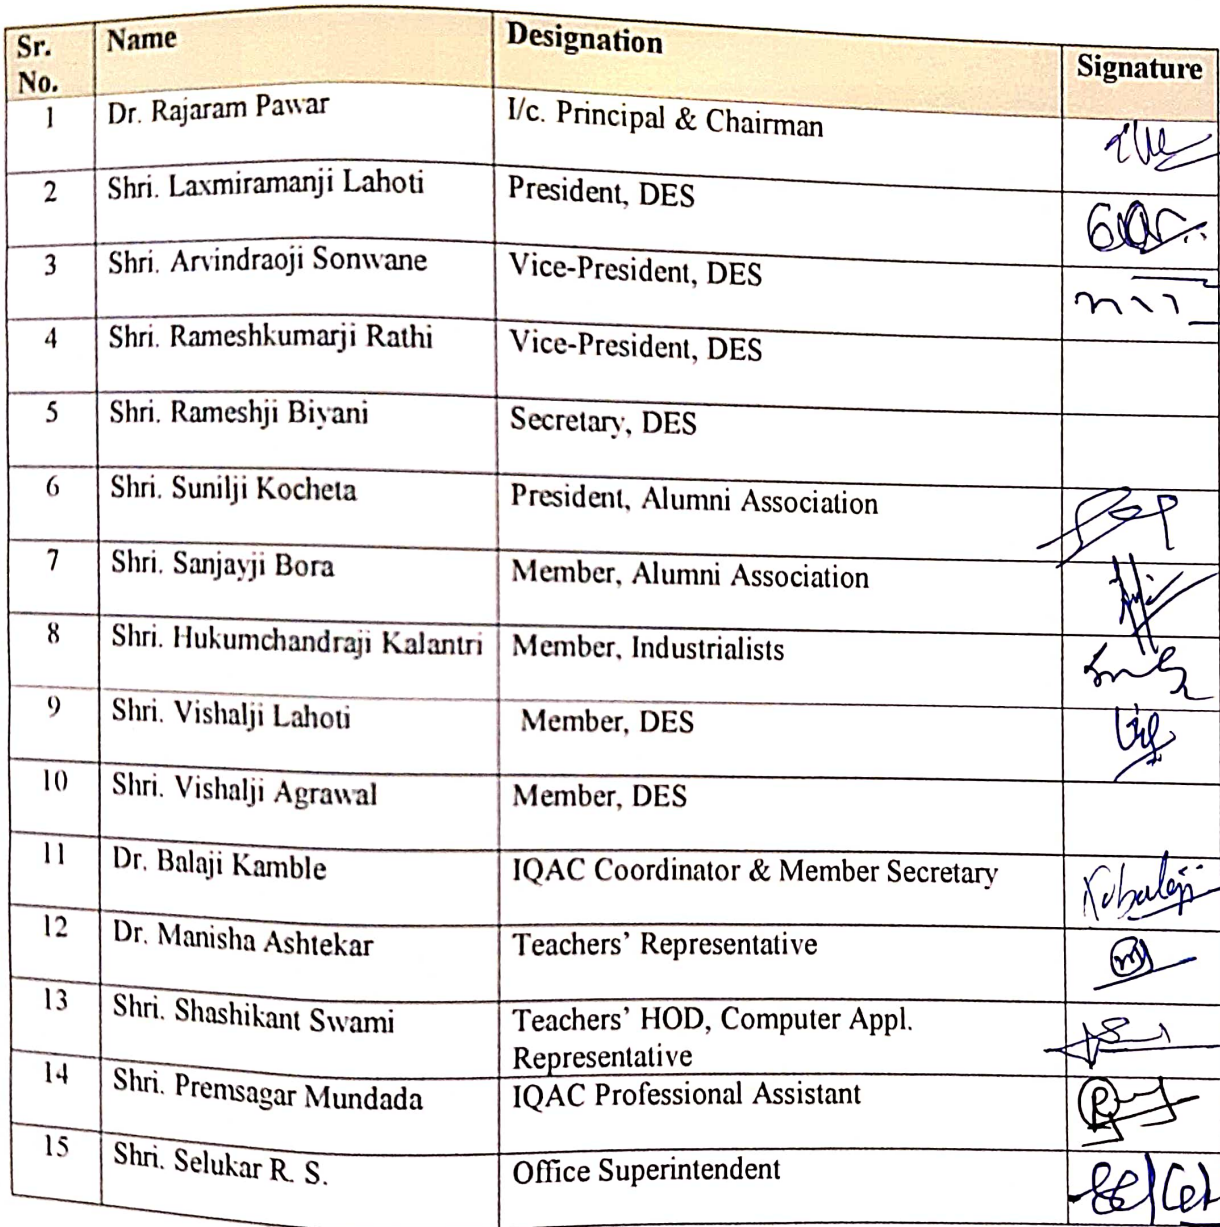 Sr. No. Name Designation Signature
1 Dr. Rajaram Pawar I/c. Principal & Chairman
2 Shri. Laxmiramanji Lahoti President, DES
3 Shri. Arvindraoji Sonwane Vice-President, DES
4 Shri. Rameshkumarji Rathi Vice-President, DES
5 Shri. Rameshji Biyani Secretary, DES
6 Shri. Sunilji Kocheta President, Alumni Association
7 Shri. Sanjayji Bora Member, Alumni Association
8 Shri. Hukumchandraji Kalantri Member, Industrialists
9 Shri. Vishalji Lahoti Member, DES
10 Shri. Vishalji Agrawal Member, DES
11 Dr. Balaji Kamble IQAC Coordinator & Member Secretary
12 Dr. Manisha Ashtekar Teachers' Representative
13 Shri. Shashikant Swami Teachers' HOD, Computer Appl.
Representative
14 Shri. Premsagar Mundada IQAC Professional Assistant
15 Shri. Selukar R. S. Office Superintendent